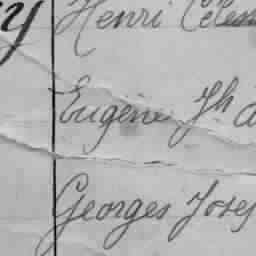 y Henri Céles
Eugène Jh
Georges Josep